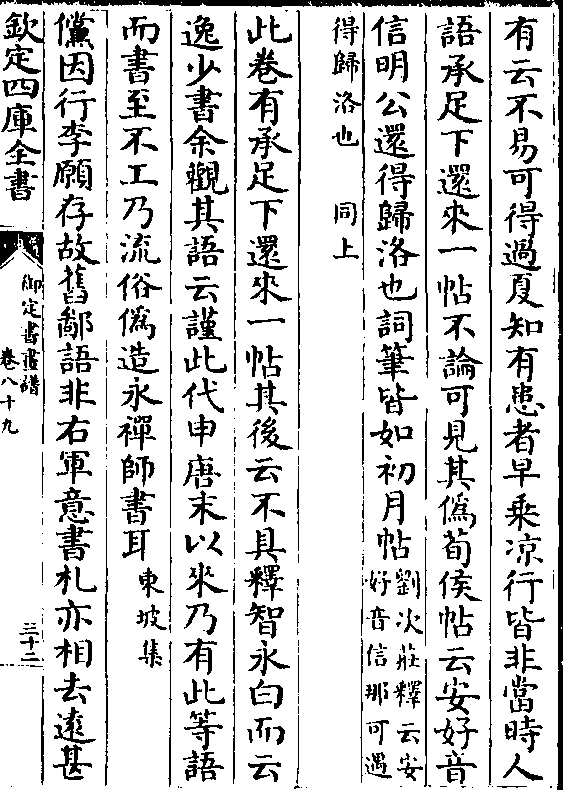 有云不易可得過夏知有患者早乘凉行皆非當時人
語承足下還來一帖不論可見其僞荀侯帖云安好音
信明公還得歸洛也詞筆皆如初月帖劉次莊釋云安
好音信那可遇
得歸洛也　同上
此卷有承足下還來一帖其後云不具釋智永白而云
逸少書余觀其語云謹此代申唐末以來乃有此等語
而書至不工乃流俗僞造永禪師書耳東坡集
儻因行李願存故舊鄙語非右軍意書札亦相去遠甚
欽定四庫全書
御定書畫譜
卷八十九
三十二